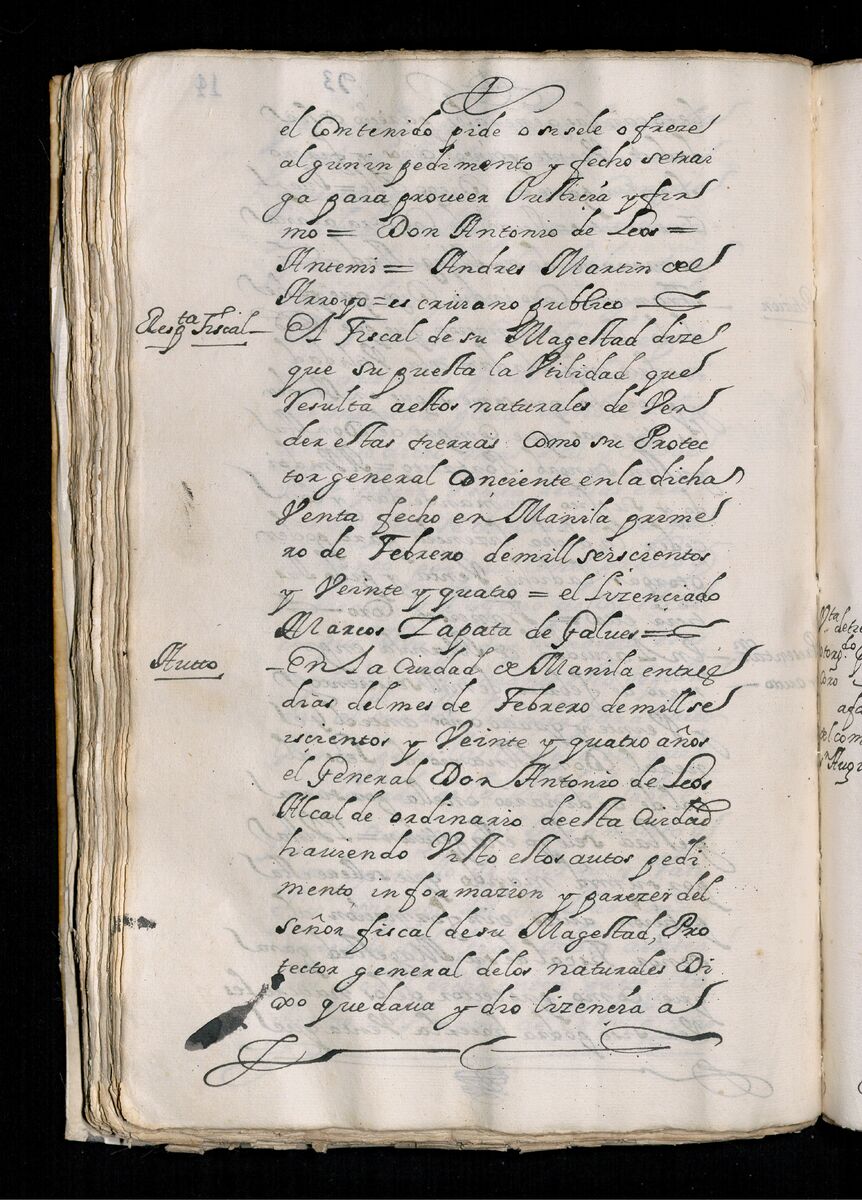 el Contenido pide o si sele ofreze
algun inpedimento y fecho setrai
ga para proveer Justicia y fir
mo = Don Antonio de Leos =
Antemi = Andres Martin del
Arroyo = escrivano publico
Resp.ta Fiscal
El Fiscal de su Magestad dize
que supuesta la Vtilidad que
resulta a estos naturales de Ven
der estas tierras como su Protec
tor general Conciente en la dicha
Venta fecho en Manila prime
ro de Febrero de mill seiscientos
y Veinte y quatro = el Lizenciado
Marcos Zapata de Galves =
Autto
En la Ciudad de Manila en tres
dias del mes de Febrero de mill se
iscientos y Veinte y quatro años
el General Don Antonio de Leos
Alcalde ordinario de esta Ciudad
haviendo Visto estos autos pedi
mento informazion y parezer del
señor fiscal de su Magestad, Pro
tector general delos naturales Di
xo que dava y dio lizencia a